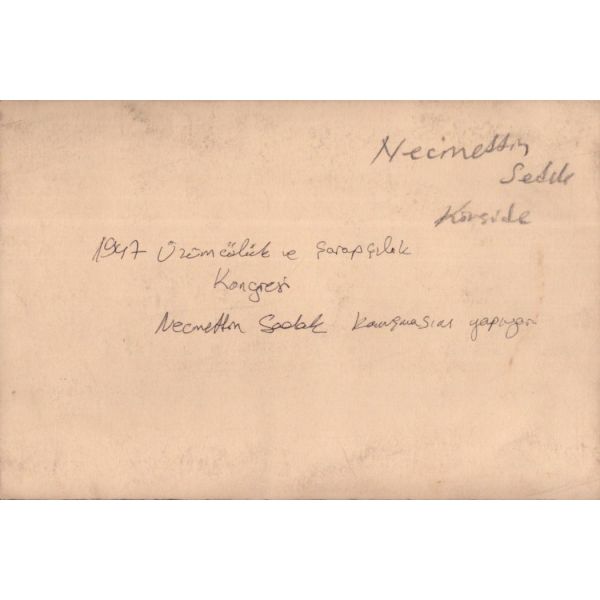 Necmettin
Sadak
Kürsüde
1947 Üzümcülük ve Şarapçılık
Kongresi
Necmettin Sadak konuşmasını yapıyor